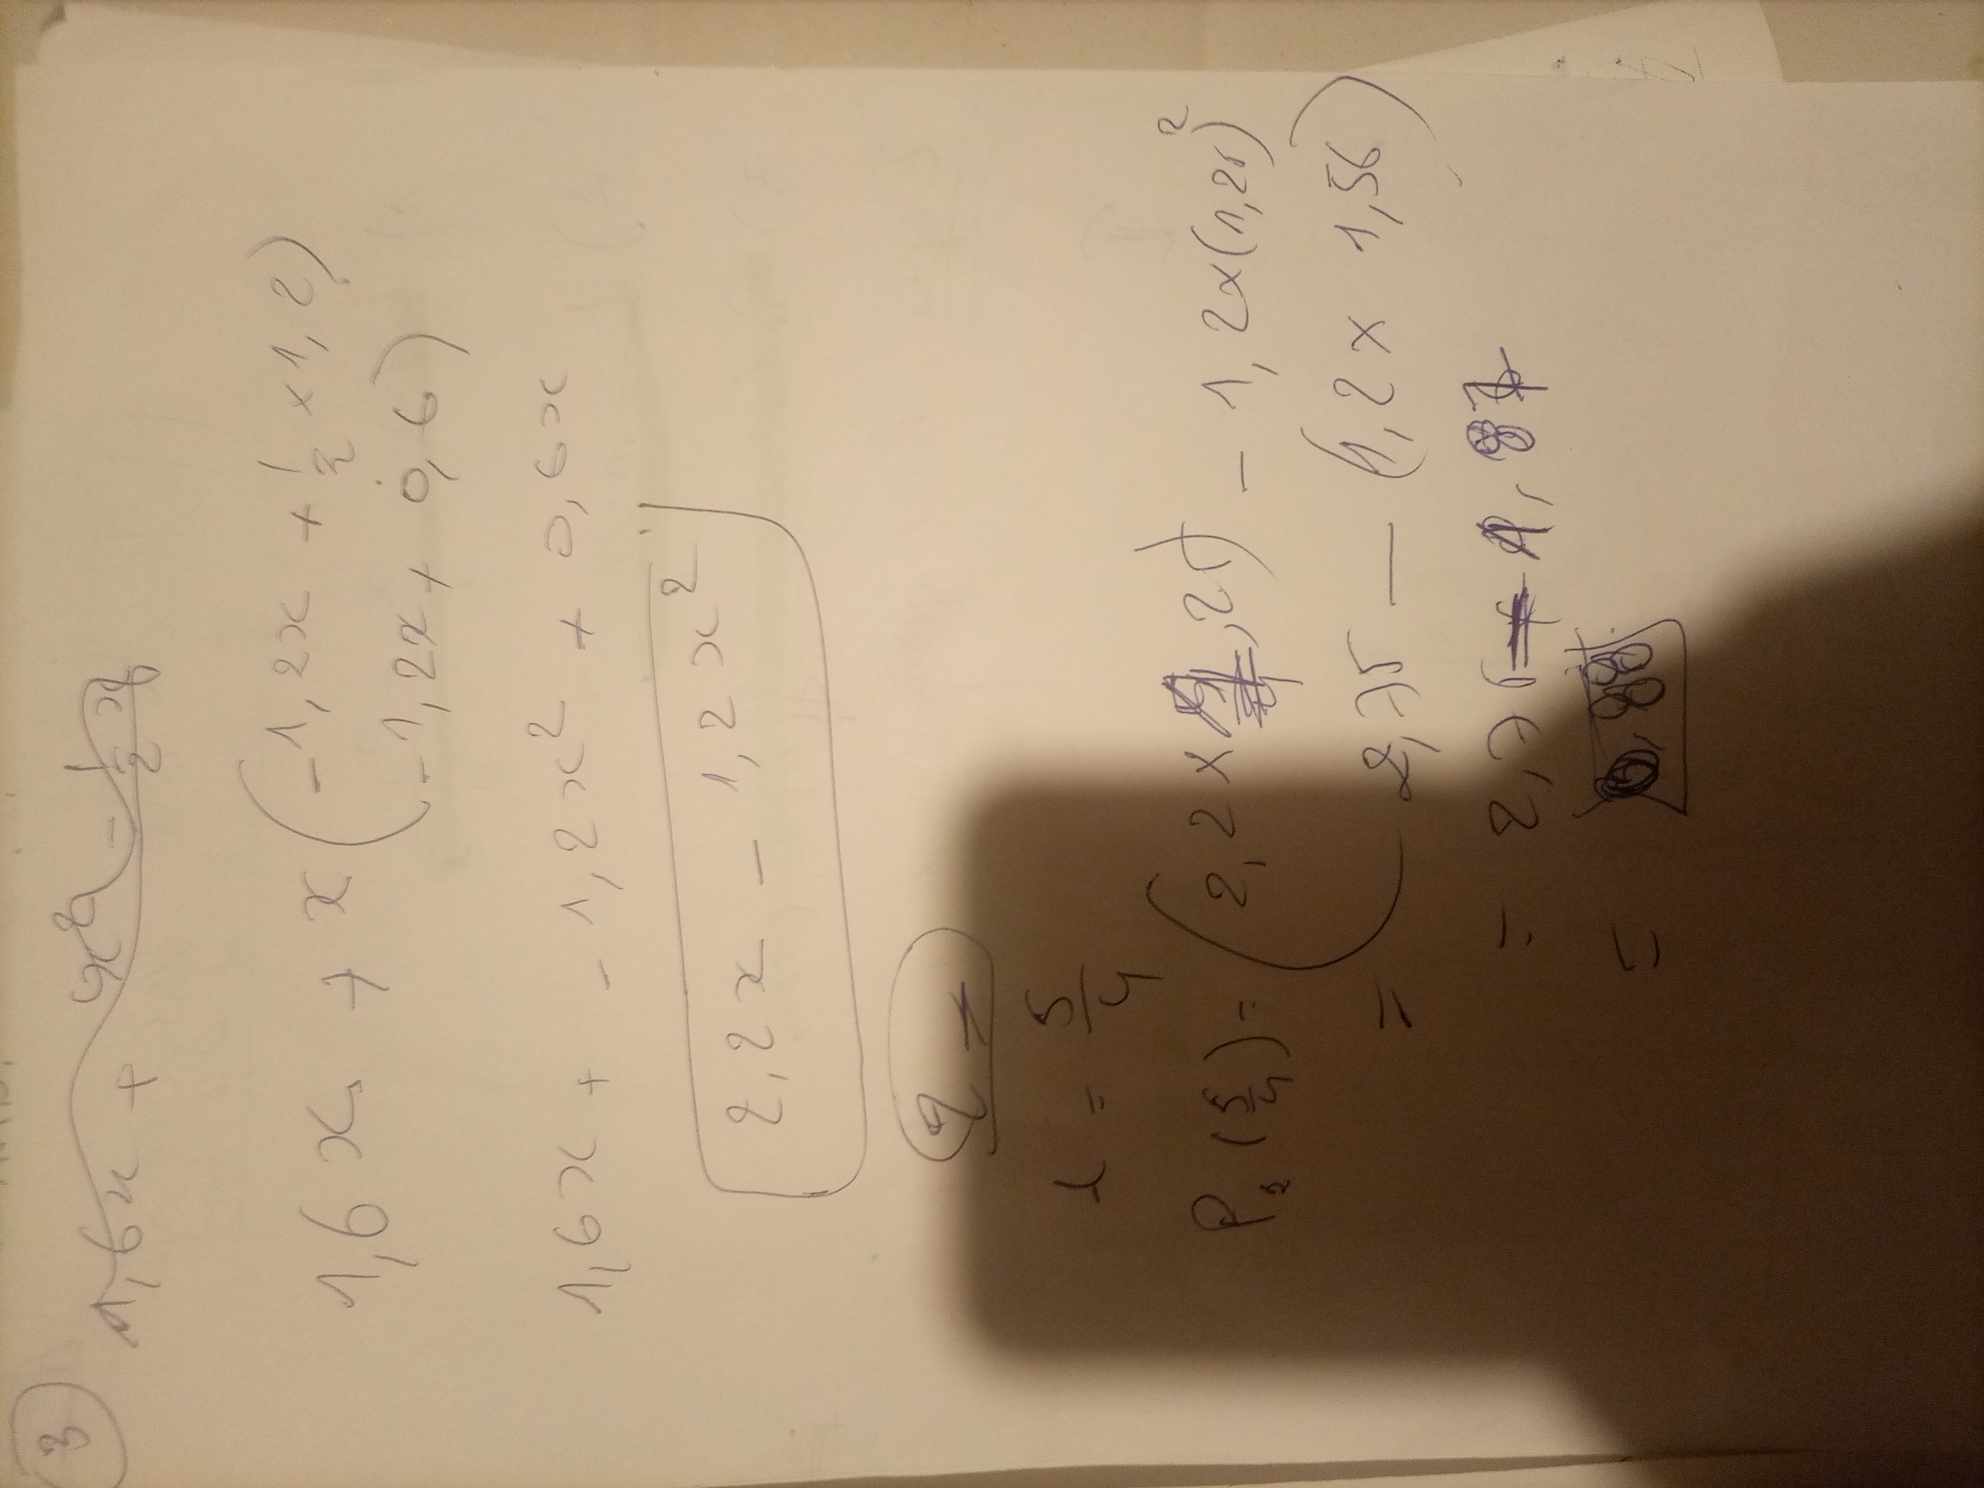 3
1,6x + x² - 1/2 x
1,6x + x(-1,2x + 1/2 × 1,2)
-1,2x + 0,6)
1,6x + -1,2x² + 0,6x
2,2x - 1,2x²
2 -
t = 5/4
P₂(5/4) = (2,2 × 1,25) - 1,2×(1,25)²
= 2,75 - (1,2 × 1,56)
= 2,75 - 1,87
= 0,88